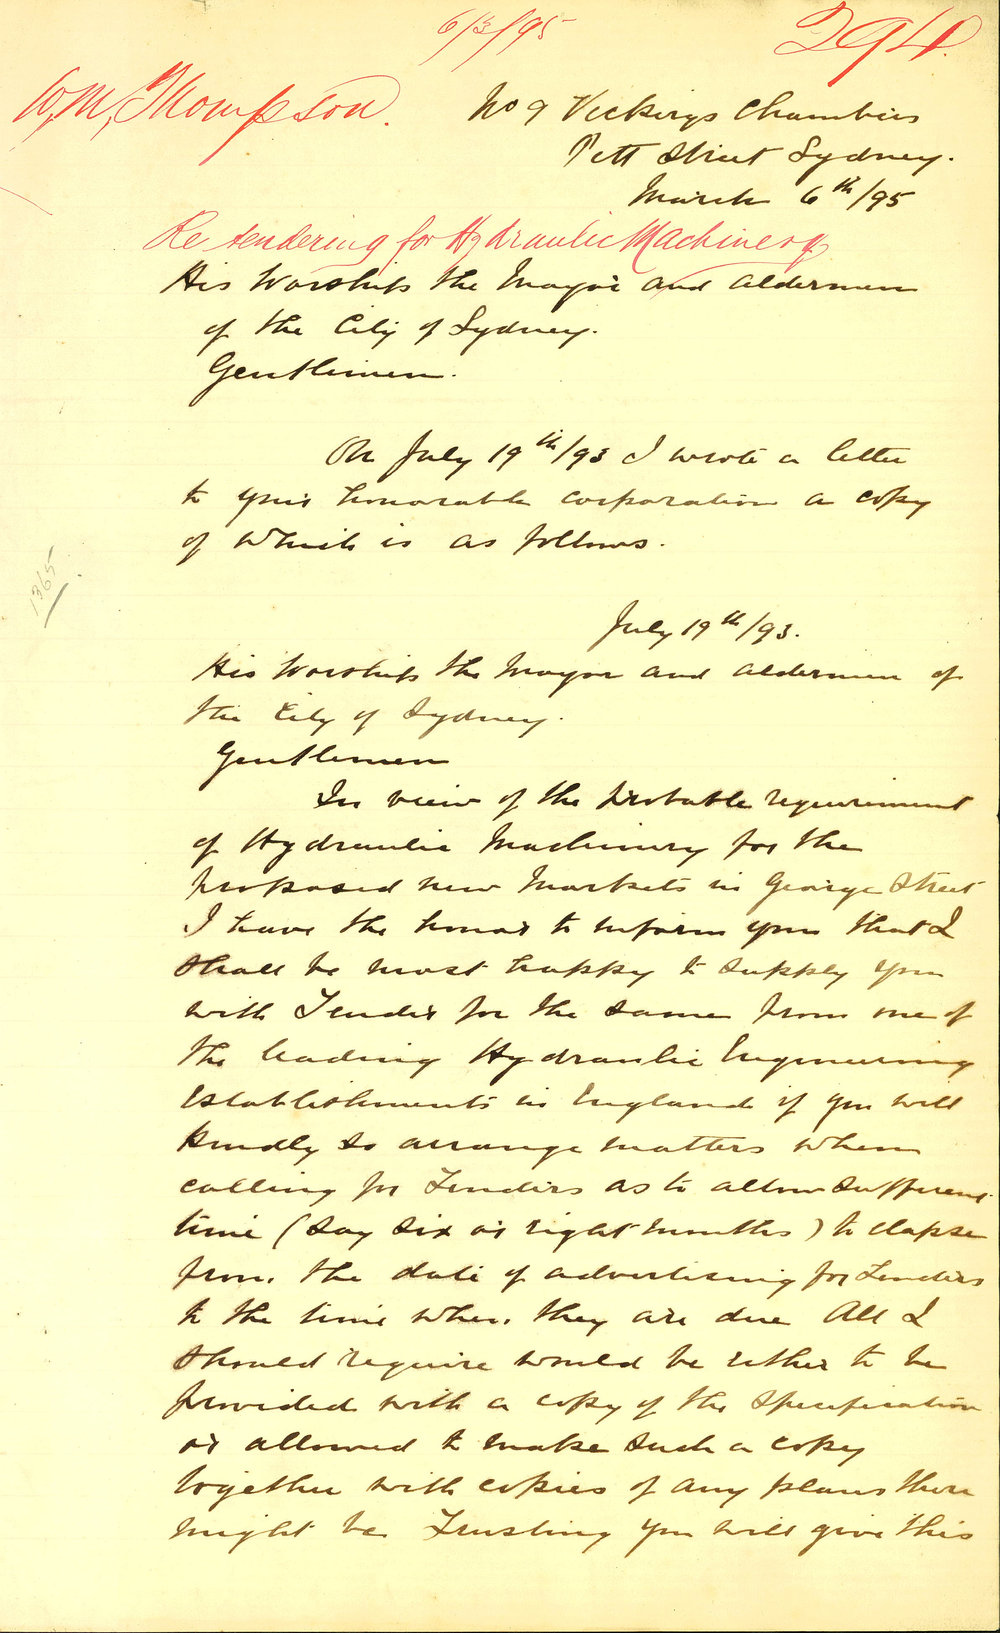 6/3/95
294
W, M, Thompson.
No 9 Vickerys Chambers
Pitt Street Sydney.
March 6th/95
Re tendering for Hydraulic Machinery
His Worship the Mayor and Aldermen
of the City of Sydney.
Gentlemen.
On July 19th/93 I wrote a letter
to your honorable corporation a copy
of which is as follows.
1365
July 19th/93.
His Worship the Mayor and Aldermen of
the City of Sydney.
Gentlemen
In view of the probable requirement
of Hydraulic Machinery for the
proposed new Markets in George Street
I have the honor to inform you that I
shall be most happy to supply you
with Tender for the same from one of
the leading Hydraulic Engineering
establishments in England if you will
kindly so arrange matters when
calling for Tenders as to allow sufficient
time (say six or eight months) to elapse
from the date of advertising for Tenders
to the time when they are due All I
should require would be either to be
provided with a copy of the specification
or allowed to make such a copy
together with copies of any plans there
might be Trusting you will give this